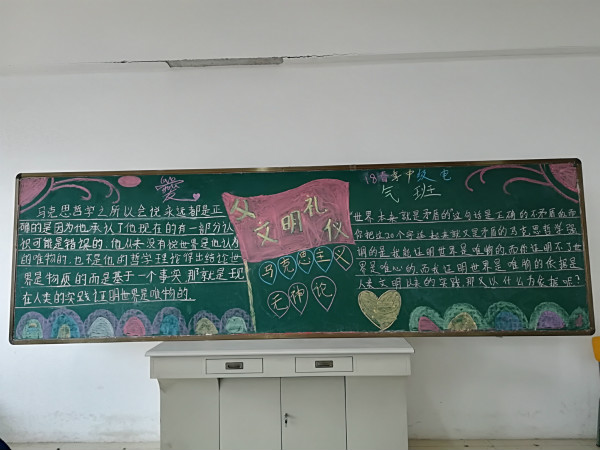 马克思哲学之所以会说永远都是正
确的是因为他承认了他现在的有一部分认
识可能是错误的。他从来没有说世界是他认为
的唯物的，也不是他的哲学理论得出结论世
界是物质的而是基于一个事实那就是现
在人类的实践证明世界是唯物的。
文明礼
仪
马克思主义
无神论
18春季中级电
气班
"世界本来就是矛盾的"这句话是正确的不矛盾
你把这20个字连起来
明的是我能证明世界是唯物的，而你证明不了世
界是唯心的，而我证明世界是唯物的依据是
人类文明以来的实践，那又以什么为依据呢？